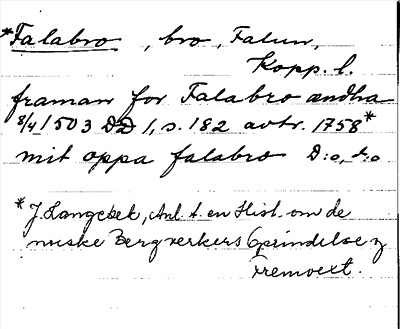 *Falabro , bro, Falun,
Kopp. l.
framan for Falabro ændha
8/4 1503 DD 1, s. 182 avtr. 1758*
mit oppa falabro D:o, d:o
*J. Langebek, Anl. t. en Hist. om de
nuske Bergverkers Oprindelse
Fremvext.